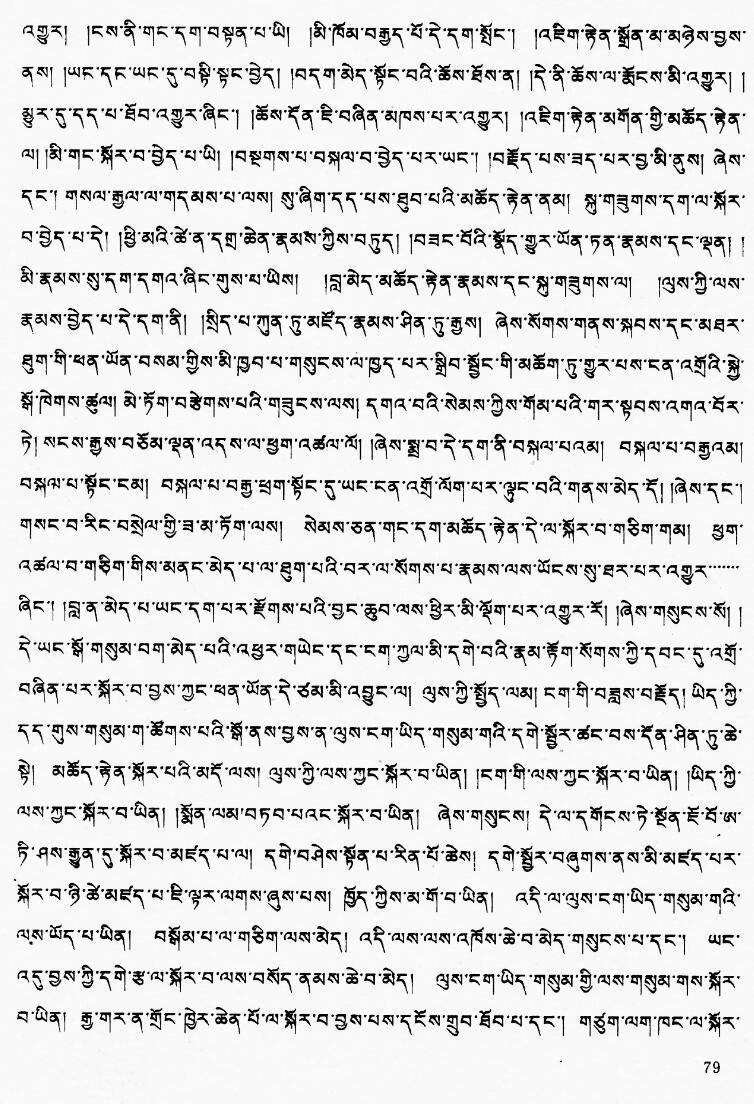 འགྱུར། །ངས་ནི་གང་དག་བསྟན་པ་ཡི། །མི་ཁོམ་བརྒྱད་པོ་དེ་དག་སྤོང་། །འཇིག་རྟེན་སྒྲོན་མ་མཉེས་བྱས་
ནས། །ཡང་དང་ཡང་དུ་བསྟི་སྟང་བྱེད། །བདག་མེད་སྟོང་བའི་ཆོས་ཐོས་ན། །དེ་ནི་ཆོས་ལ་རྨོངས་མི་འགྱུར། །
མྱུར་དུ་དད་པ་ཐོབ་འགྱུར་ཞིང་། །ཆོས་དོན་ཇི་བཞིན་མཁས་པར་འགྱུར། །འཇིག་རྟེན་མགོན་གྱི་མཆོད་རྟེན་
ལ། །མི་གང་སྐོར་བ་བྱེད་པ་ཡི། །བསྔགས་པ་བསྐལ་བ་བྱེད་པར་ཡང་། །བརྗོད་པས་ཟད་པར་བྱ་མི་ནུས། ཞེས་
དང་། གསལ་རྒྱལ་ལ་གདམས་པ་ལས། སུ་ཞིག་དད་པས་ཐུབ་པའི་མཆོད་རྟེན་ནམ། སྐུ་གཟུགས་དག་ལ་སྐོར་
བ་བྱེད་པ་དེ། །ཕྱི་མའི་ཚེ་ན་དགྲ་ཆེན་རྣམས་ཀྱིས་བཏུད། །བཟང་པོའི་སྣོད་གྱུར་ཡོན་ཏན་རྣམས་དང་ལྡན། །
མི་རྣམས་སུ་དག་དགའ་ཞིང་གུས་པ་ཡིས། །བླ་མེད་མཆོད་རྟེན་རྣམས་དང་སྐུ་གཟུགས་ལ། །ལུས་ཀྱི་ལས་
རྣམས་བྱེད་པ་དེ་དག་ནི། །སྲིད་པ་ཀུན་ཏུ་མཛོད་རྣམས་ཤིན་ཏུ་རྒྱས། ཞེས་སོགས་གནས་སྐབས་དང་མཐར་
ཐུག་གི་ཕན་ཡོན་བསམ་གྱིས་མི་ཁྱབ་པ་གསུངས་ལ་ཁྱད་པར་སྒྲིབ་སྦྱོང་གི་མཆོག་ཏུ་གྱུར་པས་ངན་འགྲོའི་སྐྱེ་
སྒོ་ཁེགས་ཚུལ། མེ་ཏོག་བརྩེགས་པའི་གཟུངས་ལས། དགའ་བའི་སེམས་ཀྱིས་གོམ་པའི་གར་སྟབས་འགའ་བོར་
ཏེ། སངས་རྒྱས་བཅོམ་ལྡན་འདས་ལ་ཕྱག་འཚལ་ལོ། །ཞེས་སྨྲ་བ་དེ་དག་ནི་བསྐལ་པའམ། བསྐལ་པ་བརྒྱའམ།
བསྐལ་པ་སྟོང་ངམ། བསྐལ་པ་བརྒྱ་ཕྲག་སྟོང་དུ་ཡང་ངན་འགྲོ་ལོག་པར་ལྟུང་བའི་གནས་མེད་དོ། །ཞེས་དང་།
གསང་བ་རིང་བསྲེལ་གྱི་ཟ་མ་ཏོག་ལས། སེམས་ཅན་གང་དག་མཆོད་རྟེན་དེ་ལ་སྐོར་བ་གཅིག་གམ། ཕྱག་
འཚལ་བ་གཅིག་གིས་མནང་མེད་པ་ལ་ཐུག་པའི་བར་ལ་སོགས་པ་རྣམས་ལས་ཡོངས་སུ་ཐར་པར་འགྱུར་······
ཞིང་། །བླ་ན་མེད་པ་ཡང་དག་པར་རྫོགས་པའི་བྱང་ཆུབ་ལས་ཕྱིར་མི་ལྡོག་པར་འགྱུར་རོ། །ཞེས་གསུངས་སོ། །
དེ་ཡང་སྒོ་གསུམ་བག་མེད་པའི་འཕྱར་གཡེང་དང་ངག་ཀྱལ་མི་དགེ་བའི་རྣམ་རྟོག་སོགས་ཀྱི་དབང་དུ་འགྲོ་
བཞིན་པར་སྐོར་བ་བྱས་ཀྱང་ཕན་ཡོན་དེ་ཙམ་མི་འབྱུང་ལ། ལུས་ཀྱི་སྤྱོད་ལམ། ངག་གི་བཟླས་བརྗོད། ཡིད་ཀྱི་
དད་གུས་གསུམ་ག་ཚོགས་པའི་སྒོ་ནས་བྱས་ན་ལུས་ངག་ཡིད་གསུམ་གའི་དགེ་སྦྱོར་ཚང་བས་དོན་ཤིན་ཏུ་ཆེ་
སྟེ། མཆོད་རྟེན་སྐོར་པའི་མདོ་ལས། ལུས་ཀྱི་ལས་ཀྱང་སྐོར་བ་ཡིན། །ངག་གི་ལས་ཀྱང་སྐོར་བ་ཡིན། །ཡིད་ཀྱི་
ལས་ཀྱང་སྐོར་བ་ཡིན། །སྨོན་ལམ་བཏབ་པའང་སྐོར་བ་ཡིན། ཞེས་གསུངས། དེ་ལ་དགོངས་ཏེ་སྔོན་ཇོ་བོ་ཨ་
ཏི་ཤས་རྒྱུན་དུ་སྐོར་བ་མཛད་པ་ལ། དགེ་བཤེས་སྟོན་པ་རིན་པོ་ཆེས། དགེ་སྦྱོར་བཞུགས་ནས་མི་མཛད་པར་
སྐོར་བ་ཉི་ཚེ་མཛད་པ་ཇི་ལྟར་ལགས་ཞུས་པས། ཁྱོད་ཀྱིས་མ་གོ་བ་ཡིན། འདི་ལ་ལུས་ངག་ཡིད་གསུམ་གའི་
ལས་ཡོད་པ་ཡིན། བསྒོམ་པ་ལ་གཅིག་ལས་མེད། འདི་ལས་ལས་འཁོས་ཆེ་བ་མེད་གསུངས་པ་དང་། ཡང་
འདུ་བྱས་ཀྱི་དགེ་རྩ་ལ་སྐོར་བ་ལས་བསོད་ནམས་ཆེ་བ་མེད། ལུས་ངག་ཡིད་གསུམ་གྱི་ལས་གསུམ་གས་སྐོར་
བ་ཡིན། རྒྱ་གར་ན་གྲོང་ཁྱེར་ཆེན་པོ་ལ་སྐོར་བ་བྱས་པས་དངོས་གྲུབ་ཐོབ་པ་དང་། གཙུག་ལག་ཁང་ལ་སྐོར་
79